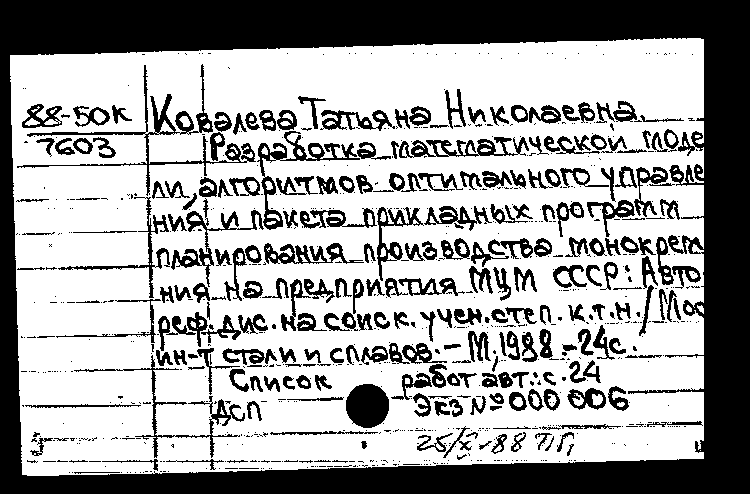 88-50К Ковалева Татьяна Николаевна.
7603 Разработка математической моде
ли, алгоритмов оптимального управле
ния и пакета прикладных программ
планирования производства монокрем
ния на предприятия МЦМ СССР: Авто
реф. дис. на соиск. учен. степ. к.т.н. / Мос
ин-т стали и сплавов. - М, 1988. - 24с.
Список работ авт.: с. 24
ДСП Экз № 000 006
25/X-88